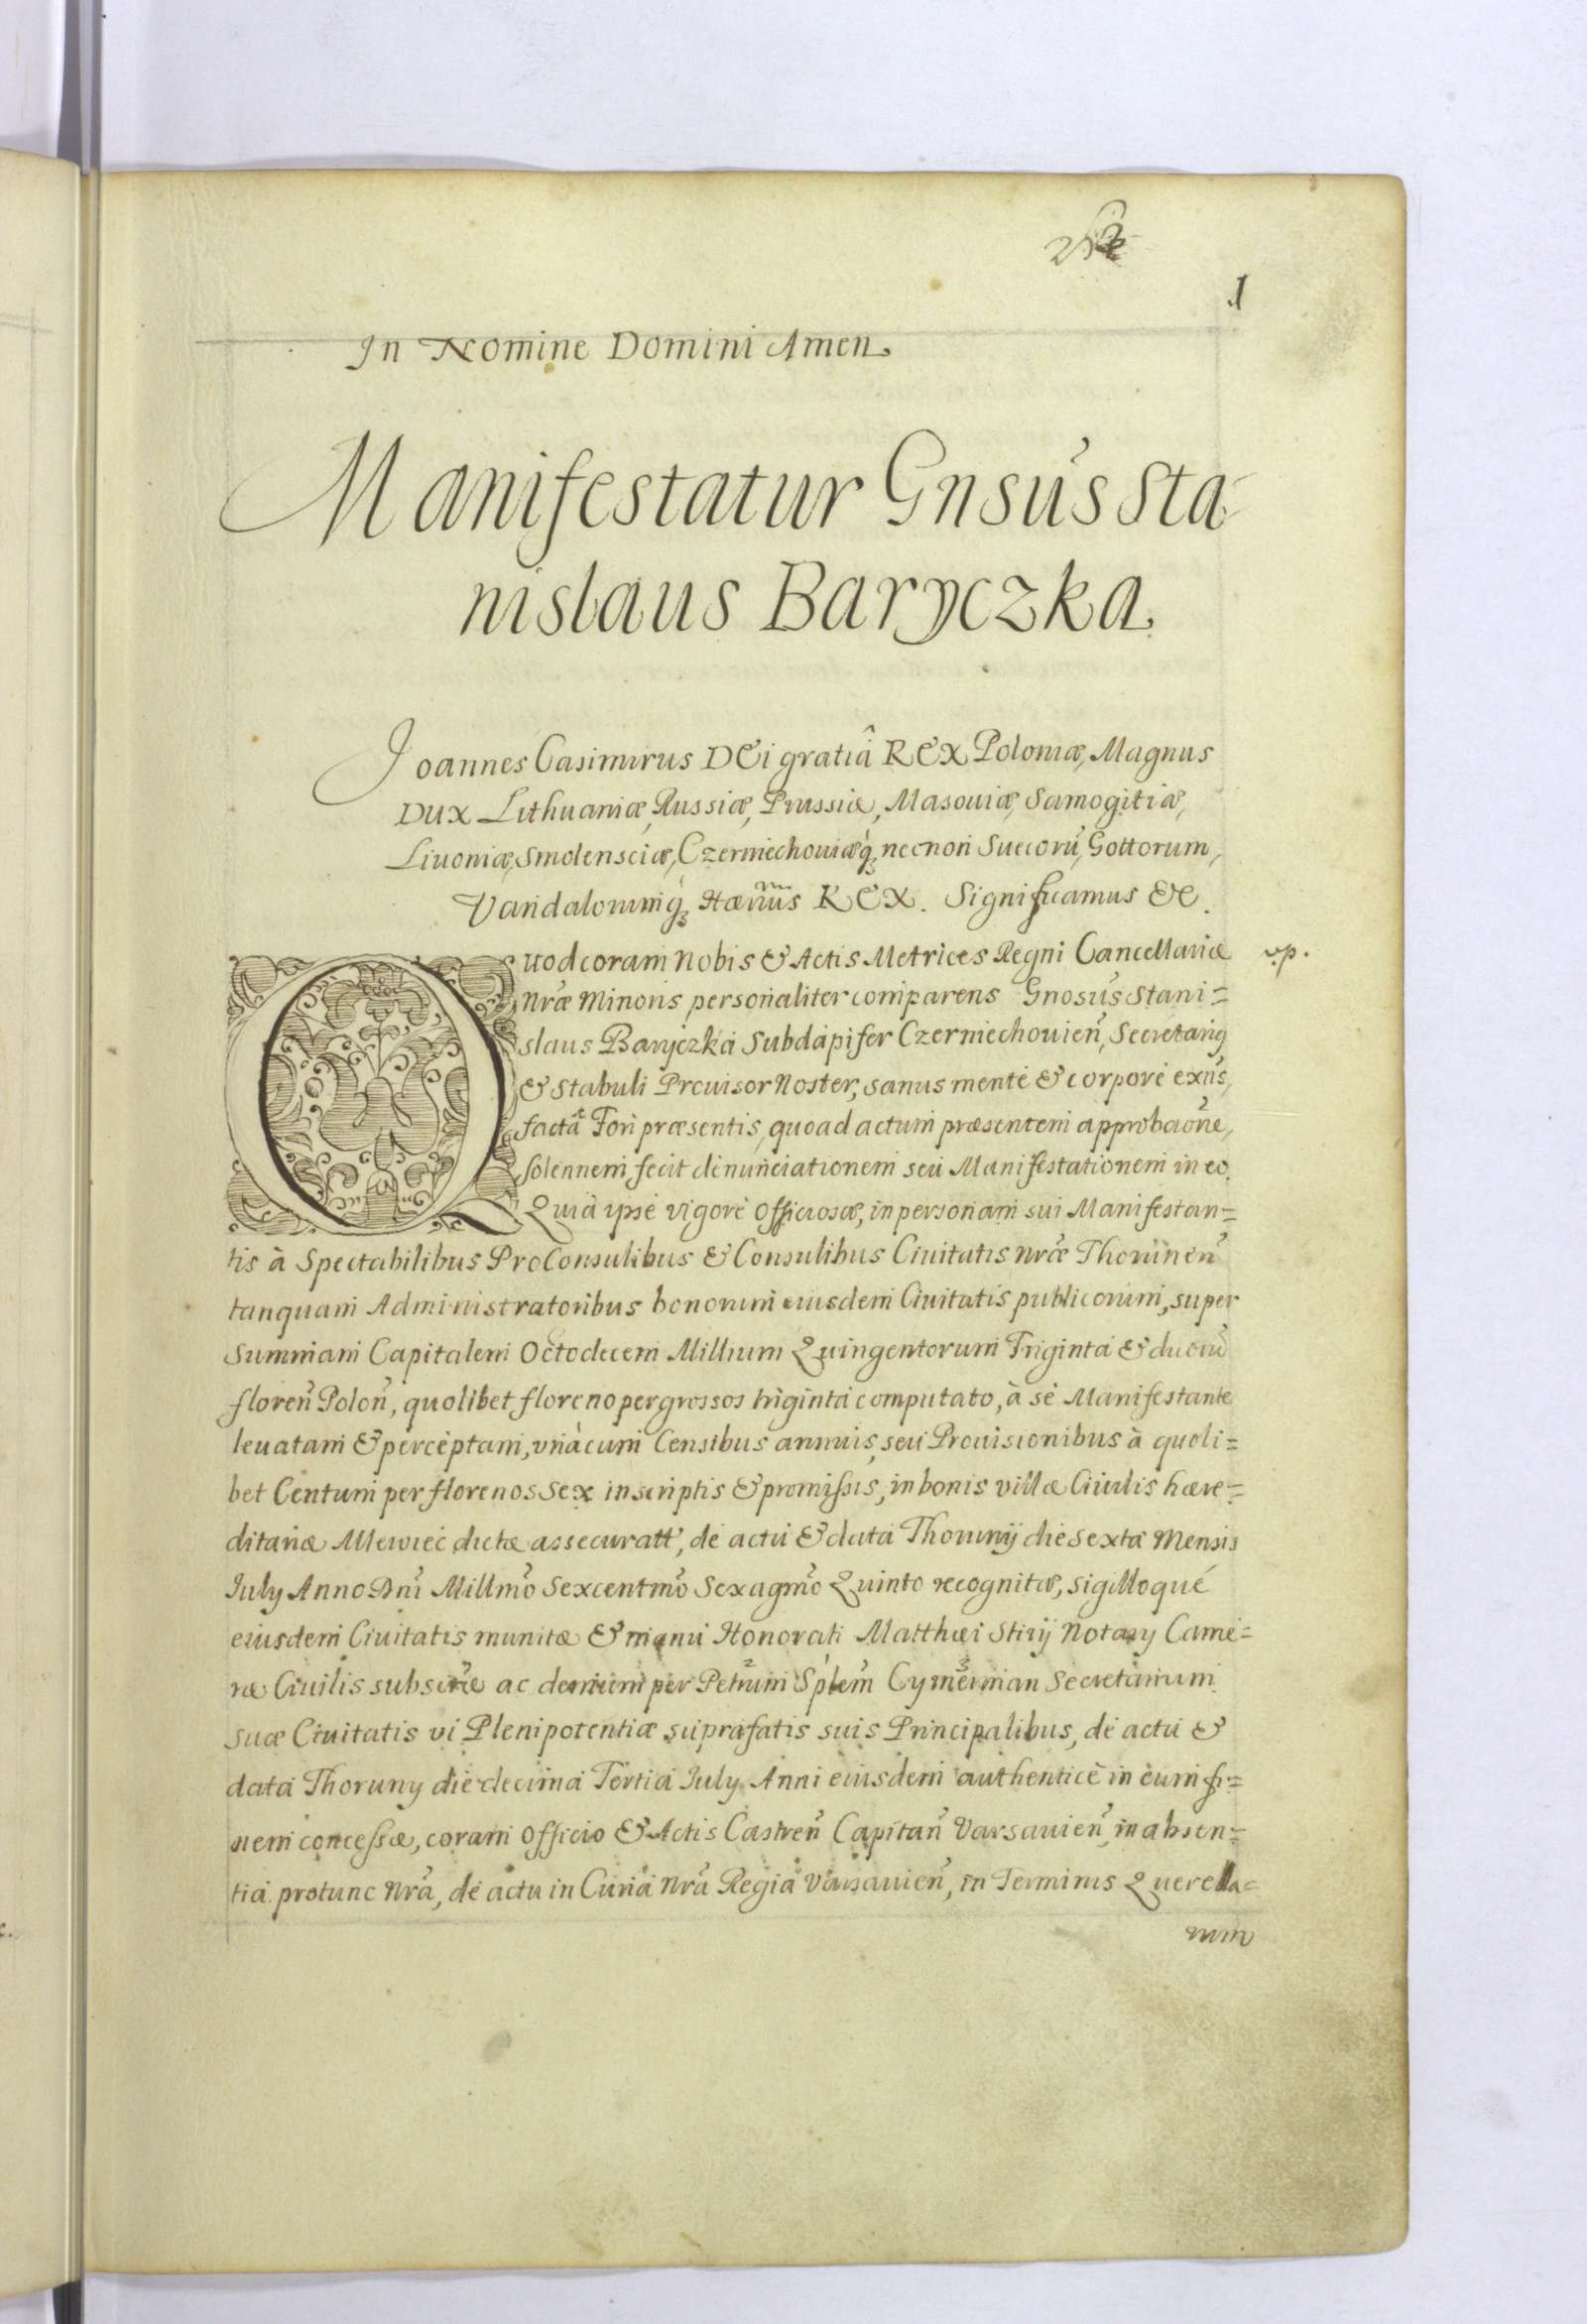 1
In Nomine Domini Amen
Manifestatur Gnsus Sta-
nislaus Baryczka
Joannes Casimirus DEi gratiâ REX Poloniæ, Magnus
Dux Lithuaniæ, Russiæ, Prussiæ, Masouiæ, Samogitiæ,
Liuoniæ, Smolensciæ, Czerniechouiæq́ꝫ necnon Suecorũ, Gottorum,
Vandalorumq́ꝫ Hæriũs REX. Significamus &c.
Quod coram Nobis & Actis Metrices Regni Cancellariæ
vp.
Nræ Minoris personaliter comparens Gnosus Stani=
slaus Baryczka Subdapifer Czerniechouien̄, Secretarig
& Stabuli Prouisor Noster, sanus mente & corpore exñs,
factâ Fori præsentis, quoad actum præsentem approbaõne,
solennem fecit denunciationem seu Manifestationem in eo.
Quia ipse vigore officiosæ, in personam sui Manifestan=
tis à Spectabilibus ProConsulibus & Consulibus Ciuitatis Nræ Thorunen̄
tanquam Administratoribus bonorum eiusdem Ciuitatis publicorum, super
Summam Capitalem Octodecem Millium Quingentorum Triginta & duorũ
floren̄ Polon̄, quolibet floreno per grossos triginta computato, à se Manifestante
leuatam & perceptam, vnà cum Censibus annuis, seu Prouisionibus à quoli=
bet Centum per florenos Sex inscriptis & promissis, in bonis villæ Ciuilis hære=
ditariæ Mlewiec dictæ assecuratt, de actu & data Thorunij die Sexta Mensis
July Anno Dnĩ Millmõ Sexcentmõ Sexagmõ Quinto recognitæ, sigilloque
eiusdem Ciuitatis munitæ & manu Honorati Matthæi Stirij Notary Came=
ræ Ciuilis subscrẽ ac demum per Petrum Splem̃ Cymerman Secretarium
suæ Ciuitatis vi Plenipotentiæ suprafatis suis Principalibus, de actu &
data Thoruny die decima Tertia July Anni eiusdem authenticè in eum fi=
nem concessæ, coram Officio & Actis Castren̄ Capitan̄ Varsauien̄, in absen=
tia protunc Nrã, de actu in Curia Nrã Regia Varsauien̄, in Terminis Querella=
rum